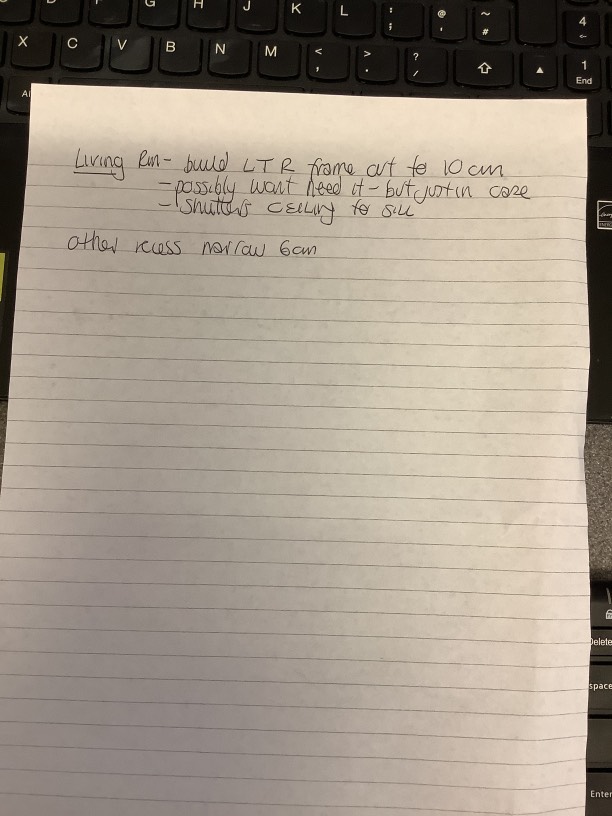 G H J K L : ; @ ' ~ # 4 ←
X C V B N M < , > . ? / 1 End
Living Rm - build LTR frame out to 10 cm
- possibly wont need it - but just in case
- shutters ceiling to sill
other recess narrow 6cm
Delete
space
Enter